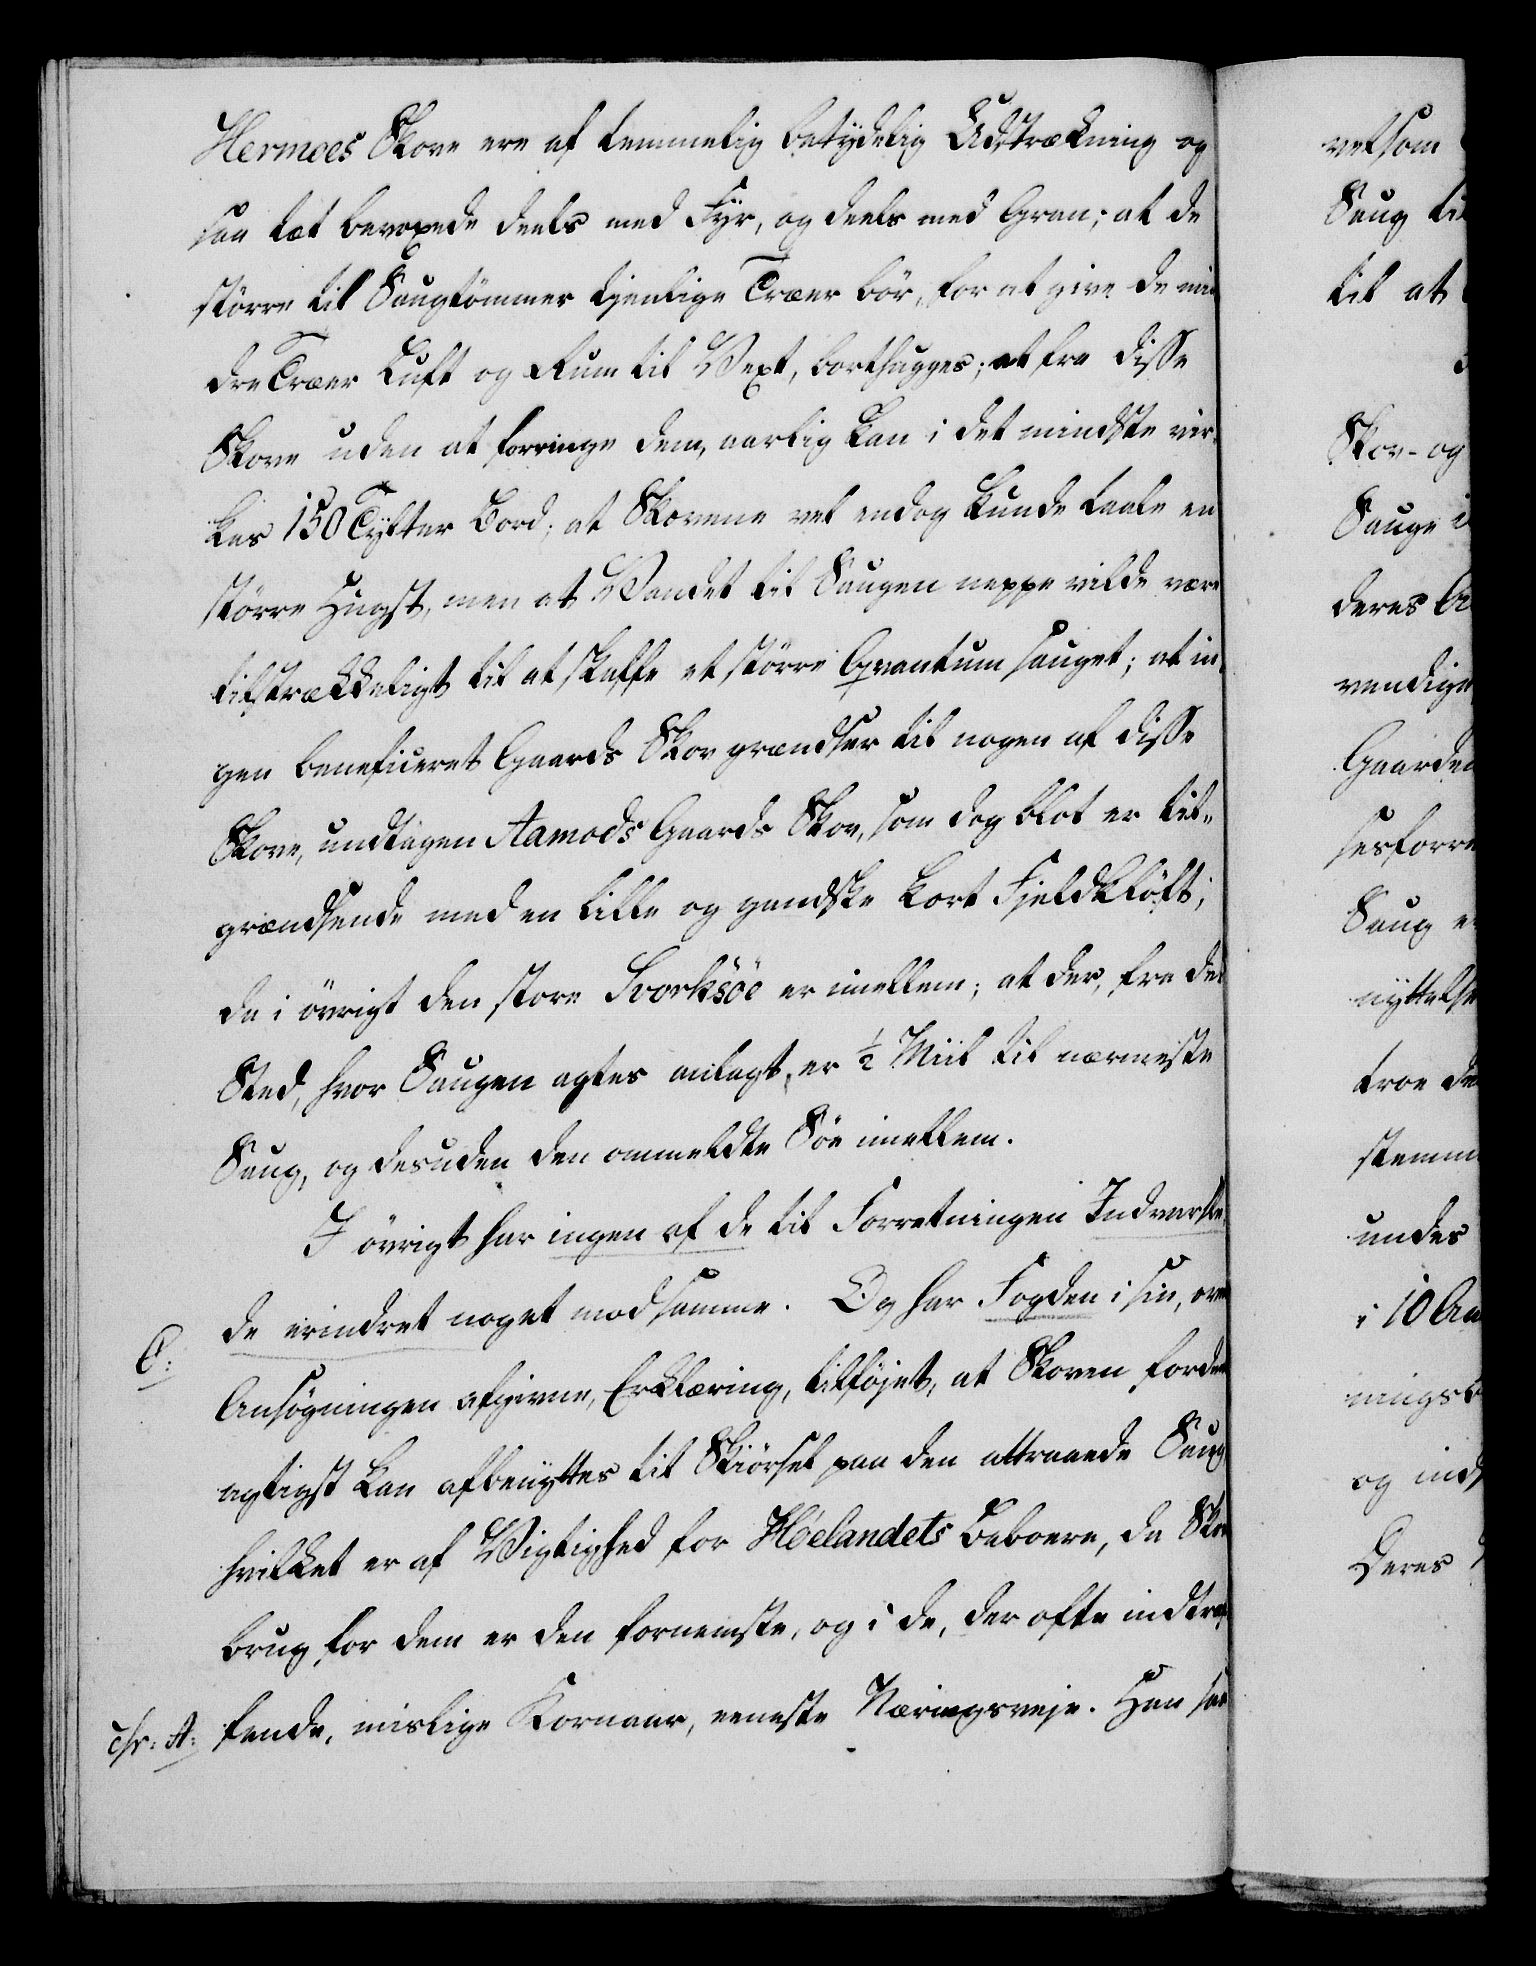 Hermoes Skove ere af temmelig betydelig Udstrækning og
saa tæt bevoxede deels med Fyr, og deels med Gran; at de
större til Saugtömmer tjenlige Træer bör, for at give de min
dre Træer Luft og Rum til Vext, borthugges; at fra disse
Skove uden at forringe dem, aarlig kan i det mindste vir„
kes 150 Tylfter Bord; at Skovene vel endog kunde taale en
större Hugst, men at Vandet til Saugen neppe vilde være
tilstrækkeligt til at skaffe et större Qvantum sauget; at in„
gen beneficeret Gaards Skov grændser til nogen af disse
Skove, undtagen Aamods Gaards Skov, som dog blot er til„
grændsende med en lille og gandske kort Fjeldklöft;
da i övrigt den store Svorksöe er imellem; at der, fra det
Sted, hvor Saugen agtes anlagt, er ½ Miil til nærmeste
Saug, og desuden den ommeldte Söe imellem.
I övrigt har ingen af de til Forretningen Indvarsle„
de erindret noget mod samme. Og har Fogden i sin, over
C:
Ansögningen afgivne, Erklæring, tilföjet, at Skoven fordel
agtigst kan afbenyttes til Skiörsel paa den attraaede Saug
hvilket er af Vigtighed for Höelandets Beboere, da Skov
brug for dem er den fornemste, og i de, der ofte indtræf
fende, mislige Kornaar, eneste Næringsveje. Han saa
cfr: A:
velsom
Saug til
til at
Skov- og
Sauge i
deres
vendige
Gaarden
sesforre
Saug
nyttelse
troe de
stemm
undes
i 10 Aa
ningsb
og ind
Deres